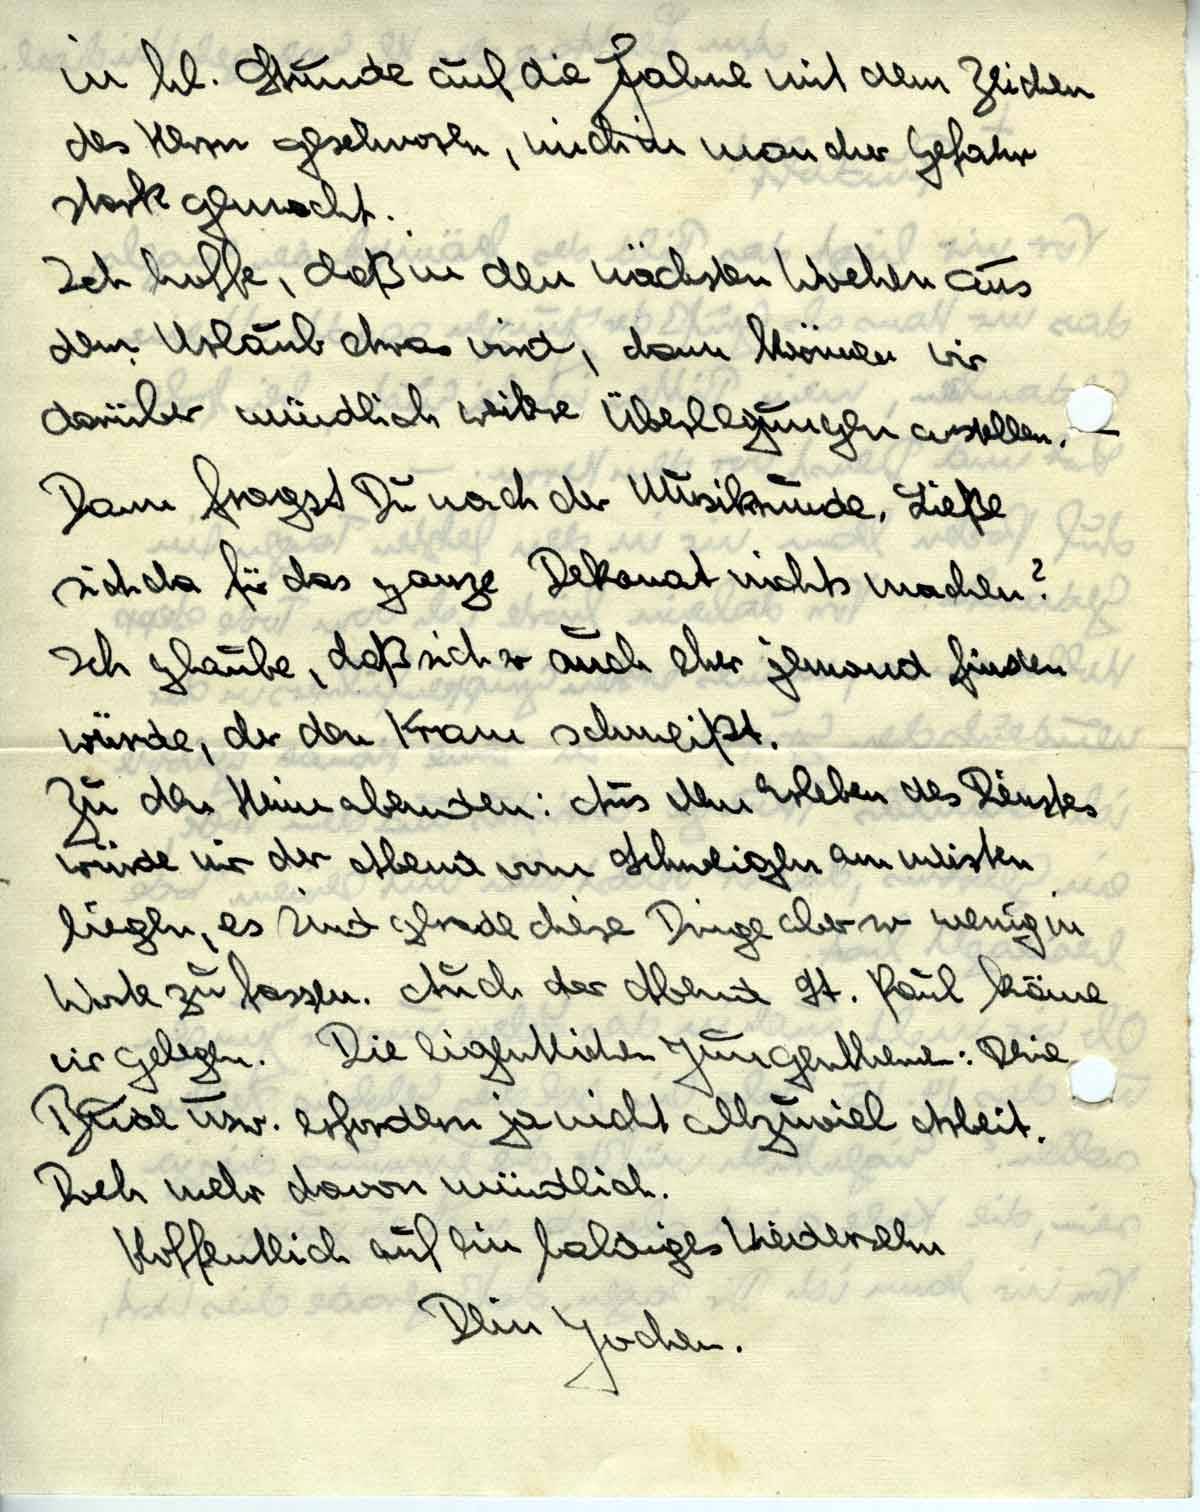 in hl. Stunde auf die Fahne mit dem Zeichen
des Herrn geschworen, mich in mancher Gefahr
stark gemacht.
Ich hoffe, daß in den nächsten Wochen aus
dem Urlaub etwas wird, dann können wir
darüber mündlich weitere Überlegungen anstellen. –
Dann fragst Du nach der Musikrunde. Ließe
sich da für das ganze Dekanat nichts machen?
Ich glaube, daß sich so auch eher jemand finden
würde, der den Kram schmeißt.
Zu den Heimabenden: Aus dem Erleben des Dienstes
würde mir der Abend vom Schweigen am meisten
liegen, es sind grade diese Dinge aber so wenig in
Worte zu fassen. Auch der Abend St. Paul käme
mir gelegen. Die eigentlichen Jungenthemen: Deine
Bude usw. erfordern ja nicht allzuviel Arbeit.
Doch mehr davon mündlich.
Hoffentlich auf ein baldiges Wiedersehn
Dein Jochen.